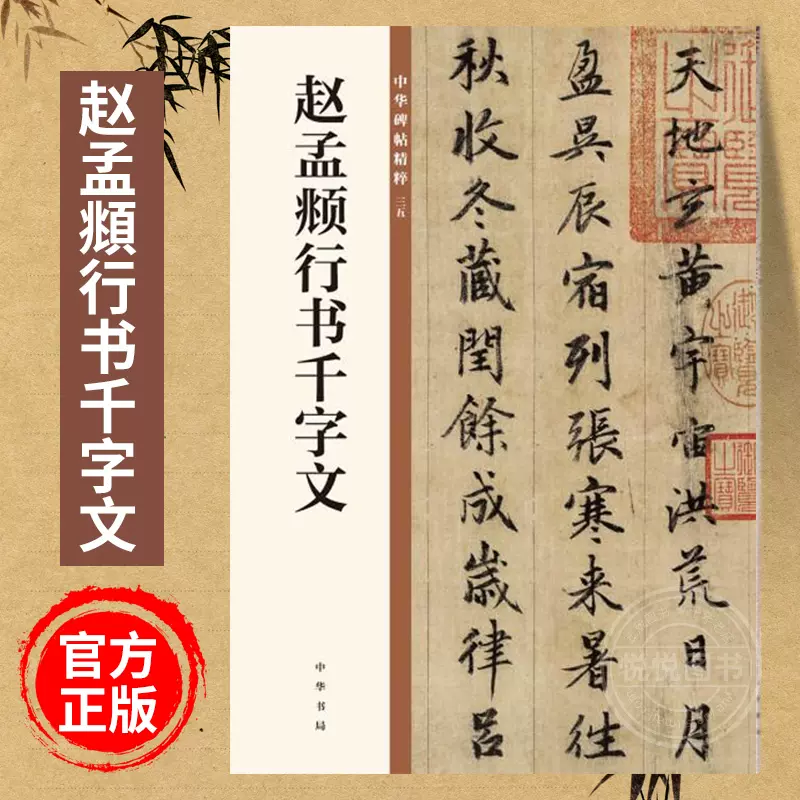 赵孟頫行书千字文
官方
正版
中华碑帖精粹 三五
赵孟𫖯行书千字文
中华书局
天地玄黄宇宙洪荒日月
盈昃辰宿列張寒来暑往
秋收冬蔵閏餘成歲律吕
悦悦图书